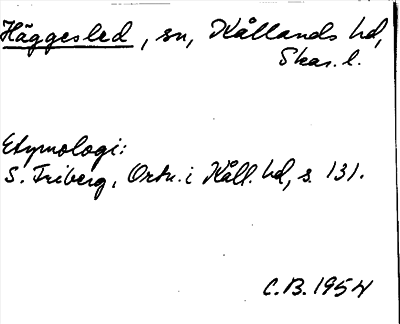 Häggesled, sn, Kållands hd,
Skar. l.
Etymologi:
S. Friberg, Ortn. i Kåll. hd, s. 131.
C.B. 1954